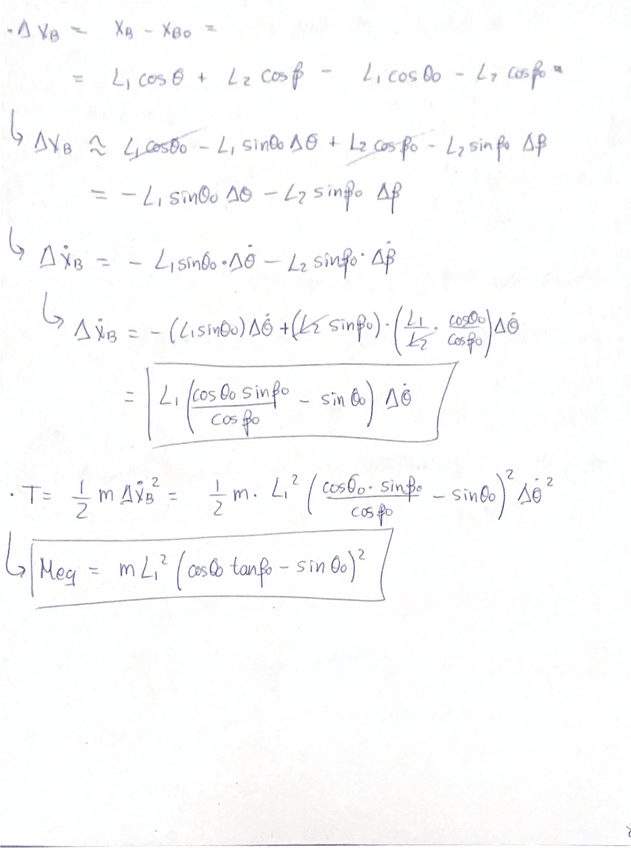 · Δ X_B = X_B - X_B0 =
= L₁ cos θ + L₂ cos β - L₁ cos θ₀ - L₂ cos β₀ =
↳ ΔX_B ≈ L₁ cos θ₀ - L₁ sin θ₀ Δθ + L₂ cos β₀ - L₂ sin β₀ Δβ
= - L₁ sin θ₀ Δθ - L₂ sin β₀ Δβ
↳ Δẋ_B = - L₁ sin θ₀ · Δθ̇ - L₂ sin β₀ · Δβ̇
↳ Δẋ_B = - (L₁ sin θ₀) Δθ̇ + (L₂ sin β₀) · (L₁/L₂ · cos θ₀/cos β₀) Δθ̇
= L₁ (cos θ₀ sin β₀/cos β₀ - sin θ₀) Δθ̇
· T = 1/2 m Δẋ_B² = 1/2 m · L₁² (cos θ₀ · sin β₀/cos β₀ - sin θ₀)² Δθ̇²
↳ Meq = m L₁² (cos θ₀ tan β₀ - sin θ₀)²